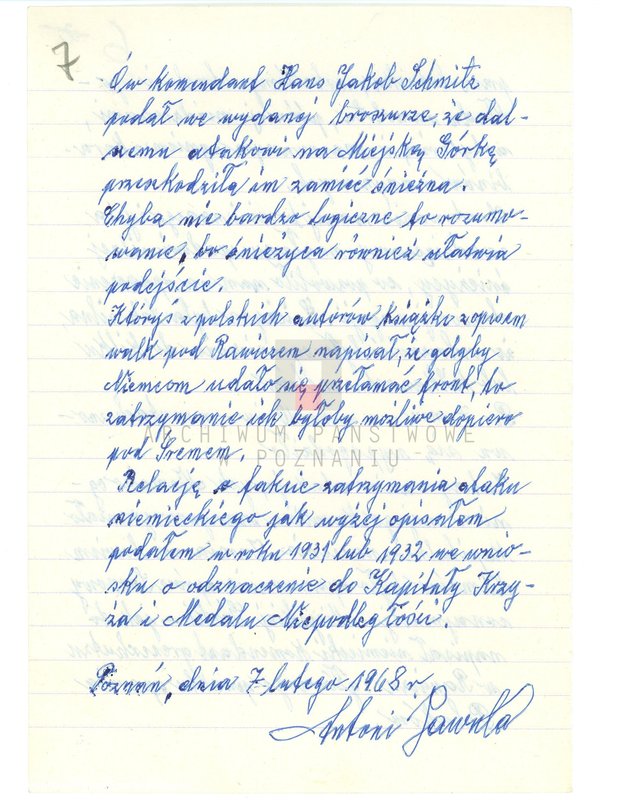 7
Ów komendant Hans Jakob Schmitz
podał we wydanej broszurze, że dal-
szemu atakowi na Miejską Górkę
przeszkodziła im zamieć śnieżna.
Chyba nie bardzo logiczne to rozumo-
wanie, bo śnieżyca również ułatwia
podejście.
Któryś z polskich autorów książki z opisem
walk pod Rawiczem napisał, że gdyby
Niemcom udało się przełamać front, to
zatrzymanie ich byłoby możliwe dopiero
pod Śremem.
Relację o fakcie zatrzymania ataku
niemieckiego jak wyżej opisałem
podałem w roku 1931 lub 1932 we wnio-
sku o odznaczenie do Kapituły Krzy-
ża i Medalu Niepodległości.
Poznań, dnia 7 lutego 1968 r.
Antoni
ARCHIWUM PAŃSTWOWE
W POZNANIU